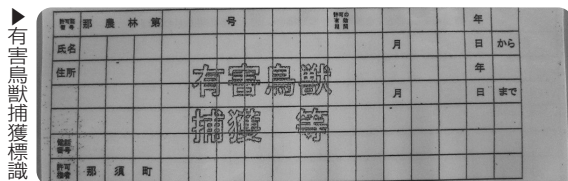 ▶有害鳥獣捕獲標識
許可証番号 那農林第 号 許可の有効期間 年
氏名 月 日から
住所 年
月 日まで
有害鳥獣
捕獲 等
電話番号
許可権者 那須町